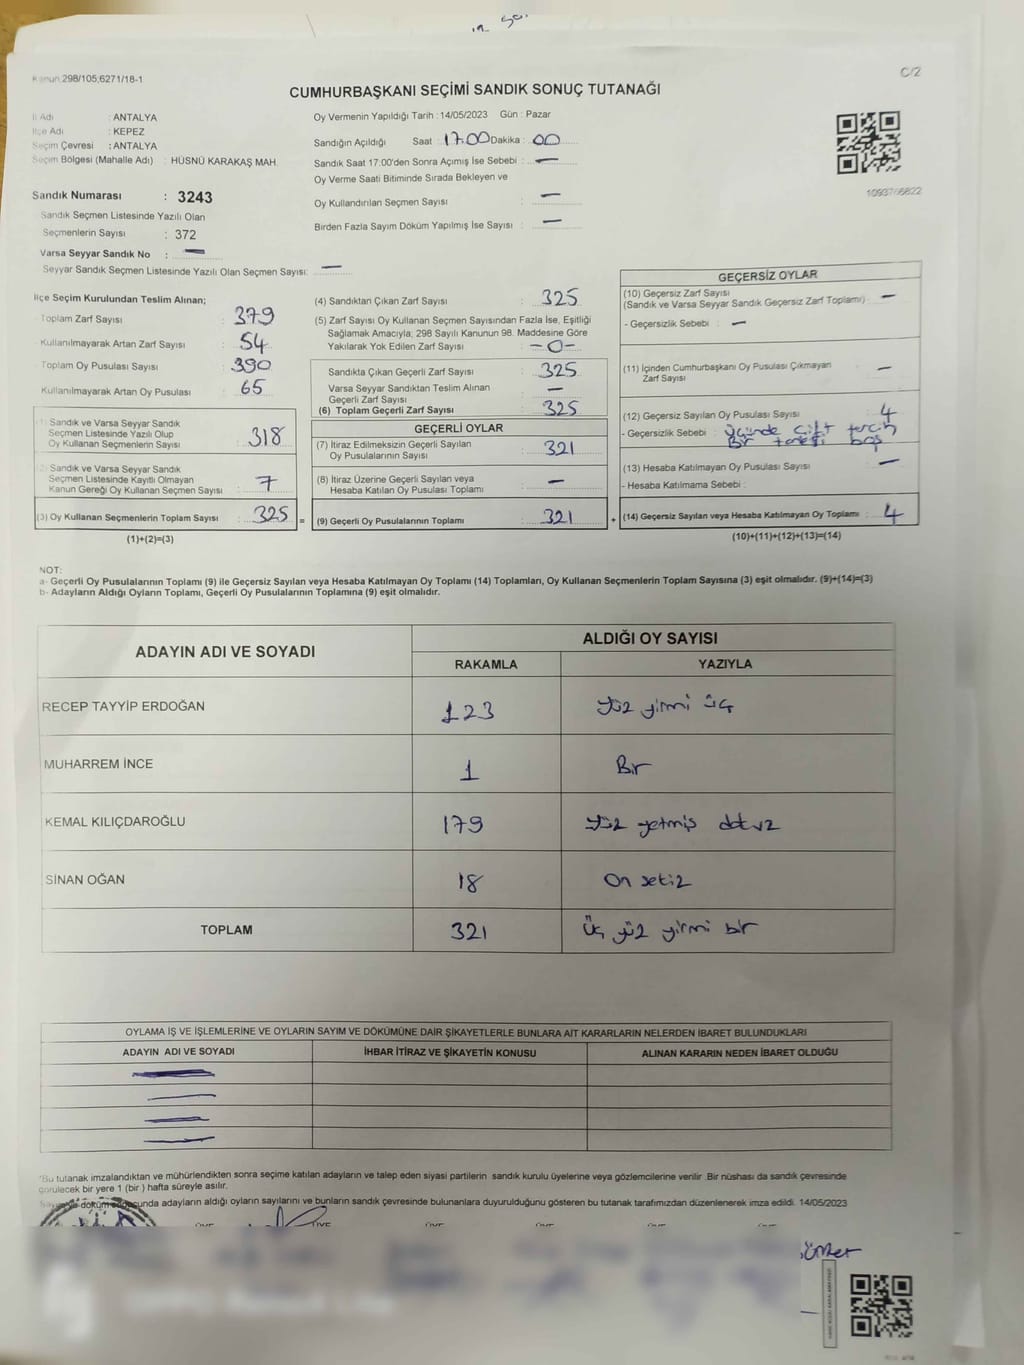 Kanun 298/105,6271/18-1
C/2
CUMHURBAŞKANI SEÇİMİ SANDIK SONUÇ TUTANAĞI
İl Adı : ANTALYA
İlçe Adı : KEPEZ
Seçim Çevresi : ANTALYA
Seçim Bölgesi (Mahalle Adı) : HÜSNÜ KARAKAŞ MAH.
Sandık Numarası : 3243
Sandık Seçmen Listesinde Yazılı Olan
Seçmenlerin Sayısı : 372
Varsa Seyyar Sandık No : —
Seyyar Sandık Seçmen Listesinde Yazılı Olan Seçmen Sayısı: —
Oy Vermenin Yapıldığı Tarih : 14/05/2023 Gün : Pazar
Sandığın Açıldığı Saat : 17.00 Dakika : 00
Sandık Saat 17:00'den Sonra Açımış İse Sebebi : —
Oy Verme Saati Bitiminde Sırada Bekleyen ve
Oy Kullandırılan Seçmen Sayısı : —
Birden Fazla Sayım Döküm Yapılmış İse Sayısı : —
1093766822
İlçe Seçim Kurulundan Teslim Alınan;
Toplam Zarf Sayısı : 379
Kullanılmayarak Artan Zarf Sayısı : 54
Toplam Oy Pusulası Sayısı : 390
Kullanılmayarak Artan Oy Pusulası : 65
(1) Sandık ve Varsa Seyyar Sandık
Seçmen Listesinde Yazılı Olup
Oy Kullanan Seçmenlerin Sayısı : 318
(2) Sandık ve Varsa Seyyar Sandık
Seçmen Listesinde Kayıtlı Olmayan
Kanun Gereği Oy Kullanan Seçmen Sayısı : 7
(3) Oy Kullanan Seçmenlerin Toplam Sayısı : 325 =
(1)+(2)=(3)
(4) Sandıktan Çıkan Zarf Sayısı : 325
(5) Zarf Sayısı Oy Kullanan Seçmen Sayısından Fazla İse, Eşitliği
Sağlamak Amacıyla, 298 Sayılı Kanunun 98. Maddesine Göre
Yakılarak Yok Edilen Zarf Sayısı : -0-
Sandıkta Çıkan Geçerli Zarf Sayısı : 325
Varsa Seyyar Sandıktan Teslim Alınan
Geçerli Zarf Sayısı : —
(6) Toplam Geçerli Zarf Sayısı : 325
GEÇERLİ OYLAR
(7) İtiraz Edilmeksizin Geçerli Sayılan
Oy Pusulalarının Sayısı : 321
(8) İtiraz Üzerine Geçerli Sayılan veya
Hesaba Katılan Oy Pusulası Toplamı : —
(9) Geçerli Oy Pusulalarının Toplamı : 321 +
GEÇERSİZ OYLAR
(10) Geçersiz Zarf Sayısı
(Sandık ve Varsa Seyyar Sandık Geçersiz Zarf Toplamı) : —
- Geçersizlik Sebebi : —
(11) İçinden Cumhurbaşkanı Oy Pusulası Çıkmayan
Zarf Sayısı : —
(12) Geçersiz Sayılan Oy Pusulası Sayısı : 4
- Geçersizlik Sebebi : Üçünde çift tercih
Bir tanesi boş
(13) Hesaba Katılmayan Oy Pusulası Sayısı : —
- Hesaba Katılmama Sebebi :
(14) Geçersiz Sayılan veya Hesaba Katılmayan Oy Toplamı : 4
(10)+(11)+(12)+(13)=(14)
NOT:
a- Geçerli Oy Pusulalarının Toplamı (9) ile Geçersiz Sayılan veya Hesaba Katılmayan Oy Toplamı (14) Toplamları, Oy Kullanan Seçmenlerin Toplam Sayısına (3) eşit olmalıdır. (9)+(14)=(3)
b- Adayların Aldığı Oyların Toplamı, Geçerli Oy Pusulalarının Toplamına (9) eşit olmalıdır.
ADAYIN ADI VE SOYADI
ALDIĞI OY SAYISI
RAKAMLA YAZIYLA
RECEP TAYYİP ERDOĞAN 123 Yüz yirmi üç
MUHARREM İNCE 1 Bir
KEMAL KILIÇDAROĞLU 179 Yüz yetmiş dokuz
SİNAN OĞAN 18 On sekiz
TOPLAM 321 Üç yüz yirmi bir
OYLAMA İŞ VE İŞLEMLERİNE VE OYLARIN SAYIM VE DÖKÜMÜNE DAİR ŞİKAYETLERLE BUNLARA AİT KARARLARIN NELERDEN İBARET BULUNDUKLARI
ADAYIN ADI VE SOYADI İHBAR İTİRAZ VE ŞİKAYETİN KONUSU ALINAN KARARIN NEDEN İBARET OLDUĞU
*Bu tutanak imzalandıktan ve mühürlendikten sonra seçime katılan adayların ve talep eden siyasi partilerin sandık kurulu üyelerine veya gözlemcilerine verilir. Bir nüshası da sandık çevresinde
görülecek bir yere 1 (bir ) hafta süreyle asılır.
Sayım ve döküm sonucunda adayların aldığı oyların sayılarını ve bunların sandık çevresinde bulunanlara duyurulduğunu gösteren bu tutanak tarafımızdan düzenlenerek imza edildi. 14/05/2023
ÜYE ÜYE ÜYE ÜYE ÜYE ÜYE